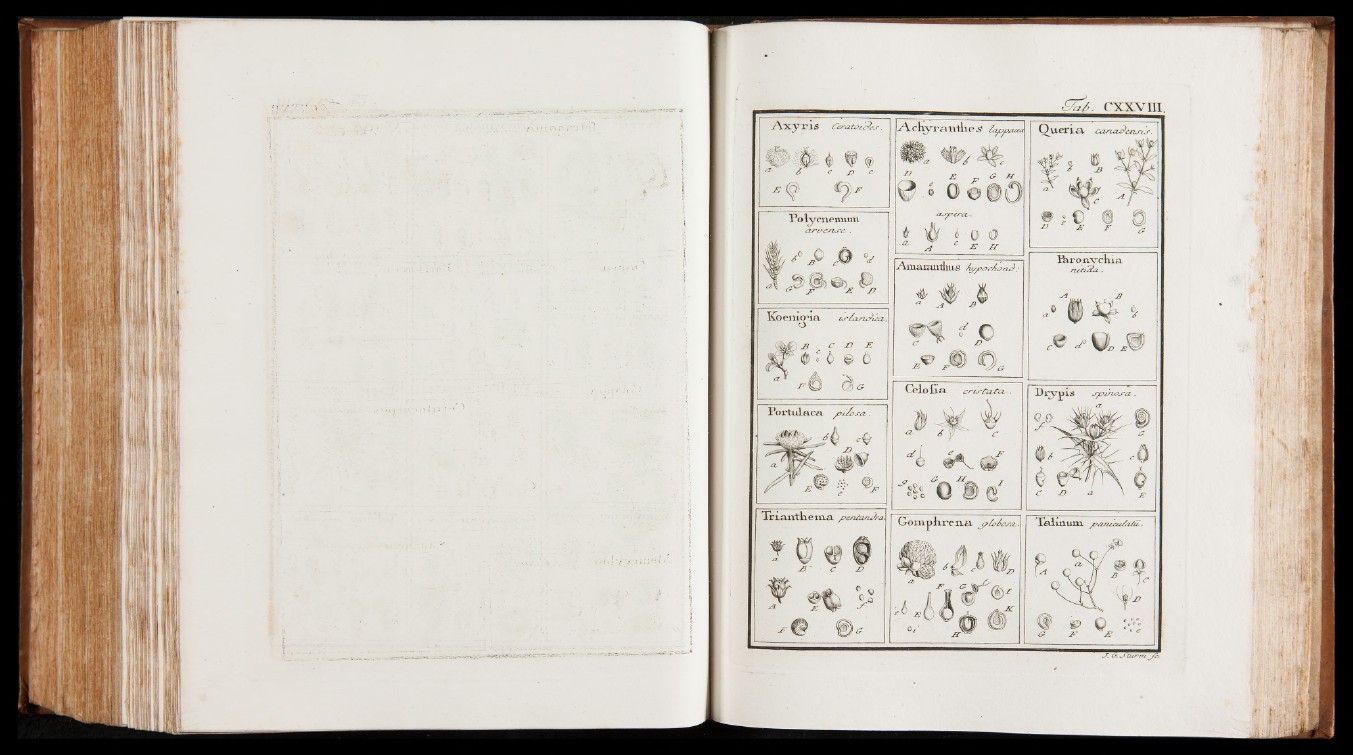 Tab. CXXVIII.
Axyris Ceratoides.
a b c D e
E F
Polycnemum
arvense.
b B c C d
a G F e E D
Koenigia islandica.
B C D E
a c
F G
Portulaca pilosa.
b c
a D
E e F
Trianthema pentandra
a B C D
A E
F G
Achyranthes lappacea
a b c
D E F G H
e
aspera.
a A c E H
Amaranthus hypochond.
a A B
c d D
E F G
Celosia cristata.
a b c
d e F
g G H I
Gomphrena globosa.
a b D
F G I
c E K
i H
Queria canadensis.
a b B
c A
D e E F G
Paronychia
nitida.
A B
a b
c d D E
Drypis spinosa.
a
f G
b c
C D a E
Talinum paniculatu.
A a B c
D
G F E e
J. G. Sturm sc.